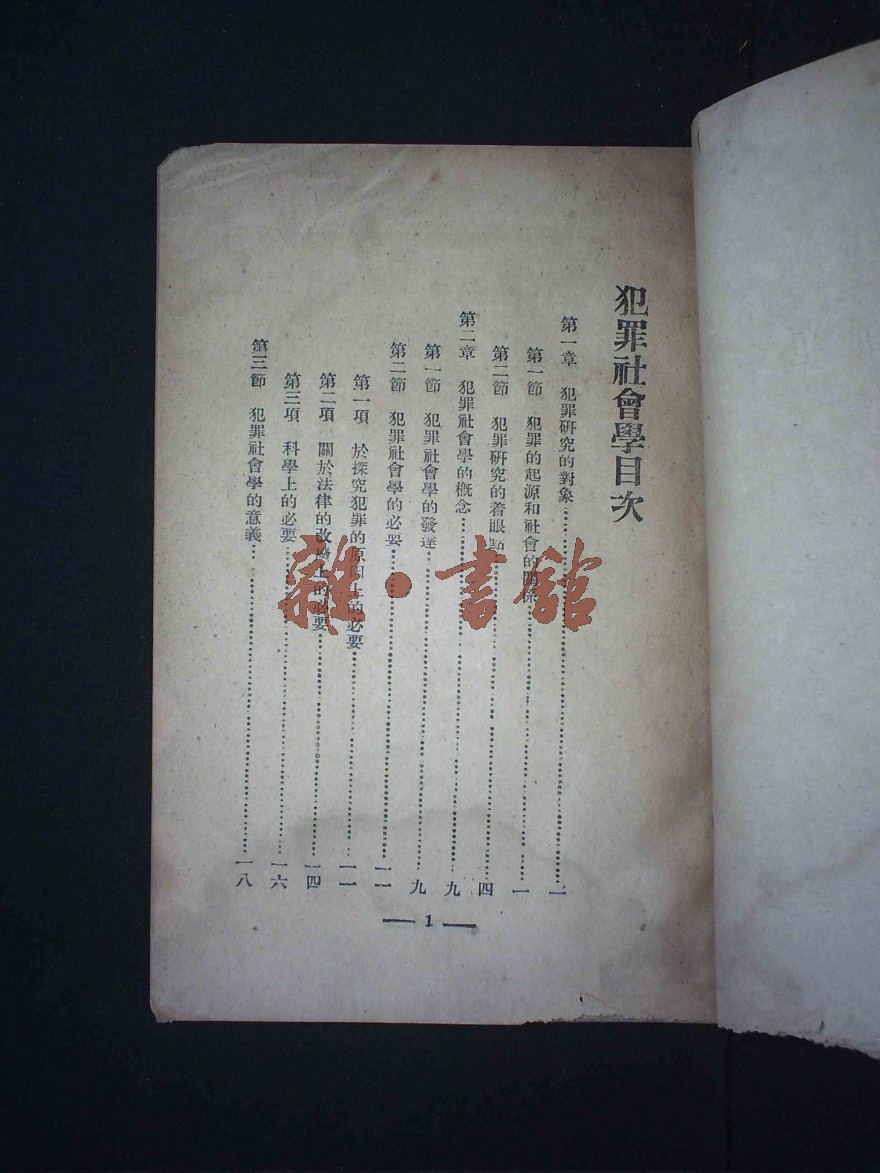 犯罪社會學目次
第一章 犯罪研究的對象……一
第一節 犯罪的起源和社會的關係……一
第二節 犯罪研究的着眼點……四
第二章 犯罪社會學的概念……九
第一節 犯罪社會學的發達……九
第二節 犯罪社會學的必要……一一
第一項 於探究犯罪的原因上的必要……一一
第二項 關於法律的改廢上的必要……一四
第三項 科學上的必要……一六
第三節 犯罪社會學的意義……一八
— 1 —
雜·書館